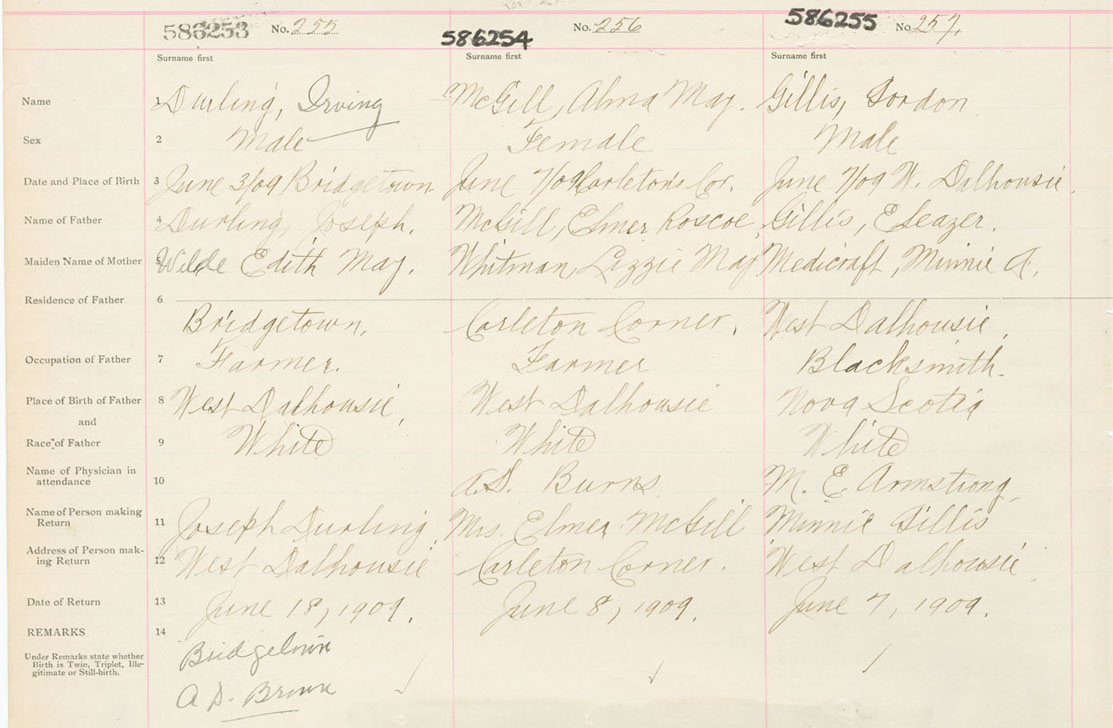 586253 No. 255 586254 No. 256 586255 No. 257
Surname first Surname first Surname first
Name 1 Durling, Irving McGill, Alma May. Gillis, Gordon
Sex 2 Male Female Male
Date and Place of Birth 3 June 3/09 Bridgetown June 7/09 Carleton's Cor. June 7/09 W. Dalhousie
Name of Father 4 Durling, Joseph. McGill, Elmer Roscoe, Gillis, Eleazer.
Maiden Name of Mother 5 Wilde Edith May. Whitman, Lizzie May Medicraft, Minnie A.
Residence of Father 6
Bridgetown, Carleton Corner, West Dalhousie,
Occupation of Father 7 Farmer. Farmer Blacksmith.
Place of Birth of Father 8 West Dalhousie, West Dalhousie Nova Scotia
and
Race of Father 9 White White White
Name of Physician in
attendance 10 A.S. Burns M. E. Armstrong,
Name of Person making
Return 11 Joseph Durling, Mrs. Elmer McGill Minnie Gillis
Address of Person mak-
ing Return 12 West Dalhousie Carleton Corner. West Dalhousie
Date of Return 13 June 18, 1909. June 8, 1909. June 7, 1909.
REMARKS 14
Under Remarks state whether
Birth is Twin, Triplet, Ille-
gitimate or Still-birth.
Bridgetown
A S. Brown